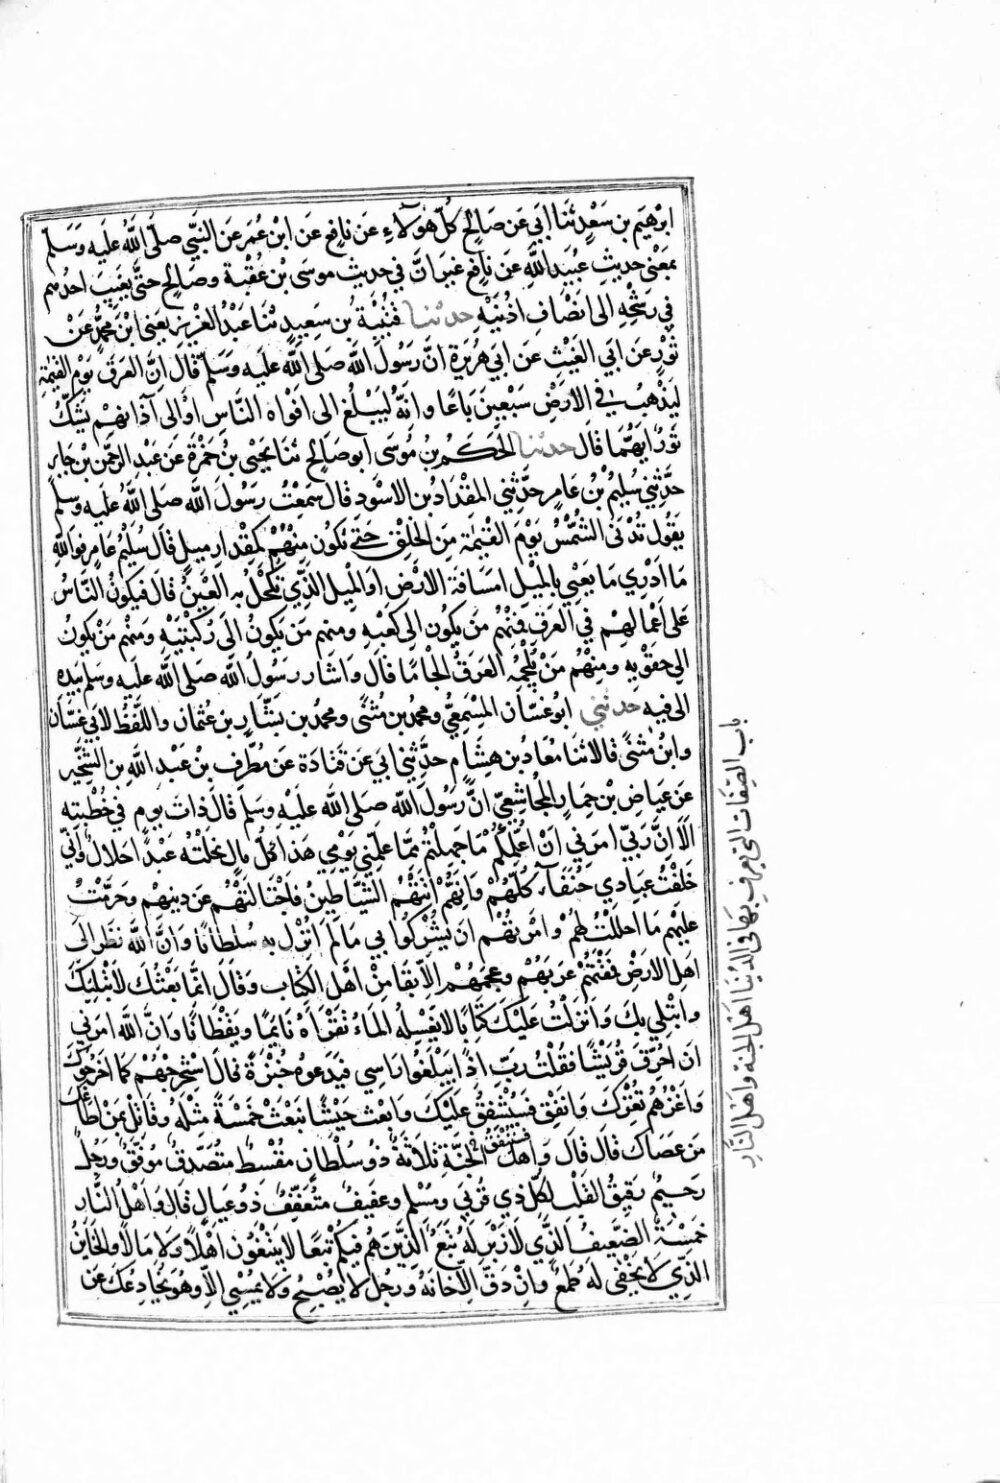 ابرهيم بن سَعْدٍ ثنا ابي عَن صَالحٍ كلُّ هٰؤلاءِ عَن نافعٍ عن ابن عُمَر عَن النبّي صلّى الله عليه وسَلم
بمَعْنٰى حديثِ عُبَيد اللهِ عَن نافعٍ غيرَ انّ في حديث موسى بْن عُقبة وصَالحٍ حتّى يغيبَ احدهم
في رشْحِهِ الى انصَافِ اذُنَيْهِ حدثنا قتيبة بن سَعيدٍ ثنا عَبْدُ العزيز يعني ابنَ محمّدٍ عَنْ
ثورٍ عن ابي الغيثِ عن ابي هريرة انّ رسُولَ الله صَلى الله عليه وسَلم قال انّ العرق يوْم القيٰمة
ليذهبُ في الارْضِ سَبْعينَ باعًا وانّه ليبلغ الى افواه الناس اوْ الى آذانهمْ يشكّ
ثورٌ ايّهُما قال حدثنا الحكم بن مُوسَى ابو صَالحٍ ثنا يحيى بن حمزة عَن عَبدِ الرحمن بن جابرٍ
حدّثني سليمُ بْن عامرٍ حدّثني المقداد بن الاسْود قال سَمعْتُ رسُولَ الله صَلى الله عَليه وسَلم
يَقولُ تُدْنَى الشّمْسُ يوْمَ القيٰمة مِنَ الخَلْقِ حتّى تكونَ منْهُمْ كمِقدارِ ميلٍ قال سُليْمُ عامرٍ فوالله
مَا ادْري مَا يَعْني بالمِيْلِ امسَافة الارْض او الميل الذّي تكحل به العَيْن قال فيكونُ النّاسُ
على اعْمالهمْ في العَرق فمِنْهُم مَن يكون الى كعبيه ومنهم مَن يكون الى ركبتيْهِ ومنهم مَن يكونُ
الى حقوَيه ومنهُم مَن يُلجِمُه العَرقُ الجامًا قال واشار رسُولُ الله صَلى الله عَليه وسَلم بيَده
الى فيه حدثني ابو غسّان المسْمَعيُّ ومحمد بن مثنّى ومحمد بن بشّار بن عثمان واللّفظُ لابي غسّان
وابن مثنّى قالا ثنا مُعاذ بن هشامٍ حدّثني ابي عَن قتادة عن مُطرّفِ بن عَبْد الله بن الشخّير
عَن عياضِ بْن حِمارٍ المجاشعيّ انّ رسُولَ الله صَلى الله عليه وسَلم قال ذاتَ يوم في خُطبته
الا انّ ربّي امرني انْ اعلّمكُم مَا جَهلتمْ ممّا علّمني يَوْمي هذا كلّ مالٍ نحلتُه عَبْدًا حَلالٌ وانّي
خلقتُ عبادي حنفآءَ كلّهمْ وانّهمْ اتتهُم الشيّاطين فاجتالتهُمْ عن دينهمْ وحرّمتْ
عليهم ما احللتُ لهم وامرتهُمْ ان يُشركوا بي مَا لم انزل به سُلطانًا وانّ الله نظر الى
اهل الارْض فمقتهُمْ عربَهُمْ وعجمهُمْ الاّ بقايا منْ اهْل الكتاب وقال انّما بعَثتك لابْتليَكَ
وابْتلي بك وانزلتُ عَليْك كتابًا لا يغسِله الماء تقرأه نايمًا ويقظانًا وانّ الله امرَني
ان احرّقَ قريْشًا فقلت ربّ اذًا يثلغوا راسي فيدعوهُ خبزةً قال اسْتخرجْهُمْ كما اخرجوك
واغزهم نغْزك وانفق فسننفقُ عَليْك وابعث جيْشًا نبعَثْ خمسةً مثلهُ وقاتِلْ بمَن اطاعك
مَن عصَاك قال قال وَاهل الجنّةِ ثلاثة ذو سُلْطانٍ مقسطٌ متصدّقٌ موفّقٌ ورجُلٌ
رحيمٌ رقيقُ القلب لكل ذي قربى ومُسْلمٍ وعفيفٌ متعفّفٌ ذو عيالٍ قال وَاهْلُ النّار
خمسَةٌ الضّعيفُ الذّي لا زبر له الذّين هم فيكمْ تبعًا لا يبتغون اهْلًا ولا مالًا والخاينُ
الذّي لا يخفى له طمعٌ وانْ دقّ الاّ خانهُ ورجُلٌ لا يُصْبِحُ ولا يُمْسِي الاّ وهُو يخادعُك عَن
باب الصِفات التى يعرف بها فى الدنيا اهل الجنة واهل النار